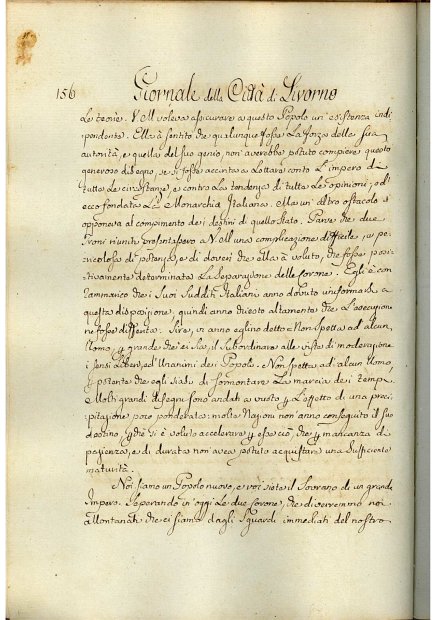 156 Giornale della Città di Livorno
Le teorie. V.M voleva assicurare a questo Popolo un'esistenza indi
pendente. Ella à sentito che qualunque fosse La forza della sua
autorità, e quella del suo genio, non'averebbe potuto compiere questo
generoso disegno, se si fosse accinta a Lottare contro L'impero di
tutte Le circostanze, e contro La tendenza di tutte Le opinioni; ed'
ecco fondata La Monarchia Italiana. Ma un'altro ostacolo si
opponeva al compimento dei destini di quello Stato. Parve che due
Troni riuniti presentassero a V.M una complicazione difficile, e pe
ricolosa di potenza, e di doveri che ella à voluto, che fosse posi
tivamente determinata La Separazione delle Corone. Egli è con
rammarico che i Suoi Sudditi Italiani anno dovuto uniformarsi a
questa disposizione, quindi anno chiesto altamente che L'esecuzio
ne fosse differita. Sire, vi anno eglino detto = Non spetta ad'alcun'
Uomo, grande che ei sia, il Subordinare alle viste di moderazione
i sensi Liberi, ed'Unanimi dei Popoli. = Non Spetta ad'alcun Uomo
potente che egli sia di sormontare La marcia dei tempi.
Molti grandi disegni sono andati a vuoto L'effetto di una pre
cipitazione poco ponderata: molte Nazioni non'anno conseguito il suo
destino che si è voluto accelerare ciò, che mancanza di
pazienza, e di durata non avea potuto acquistare una Sufficiente
maturità.
Noi Siamo un Popolo nuovo, e voi siete il Sovrano di un grande
Impero. Separando in'oggi Le due Corone, che diverremmo noi
allontanati che ci siamo dagli Sguardi immediati del nostro